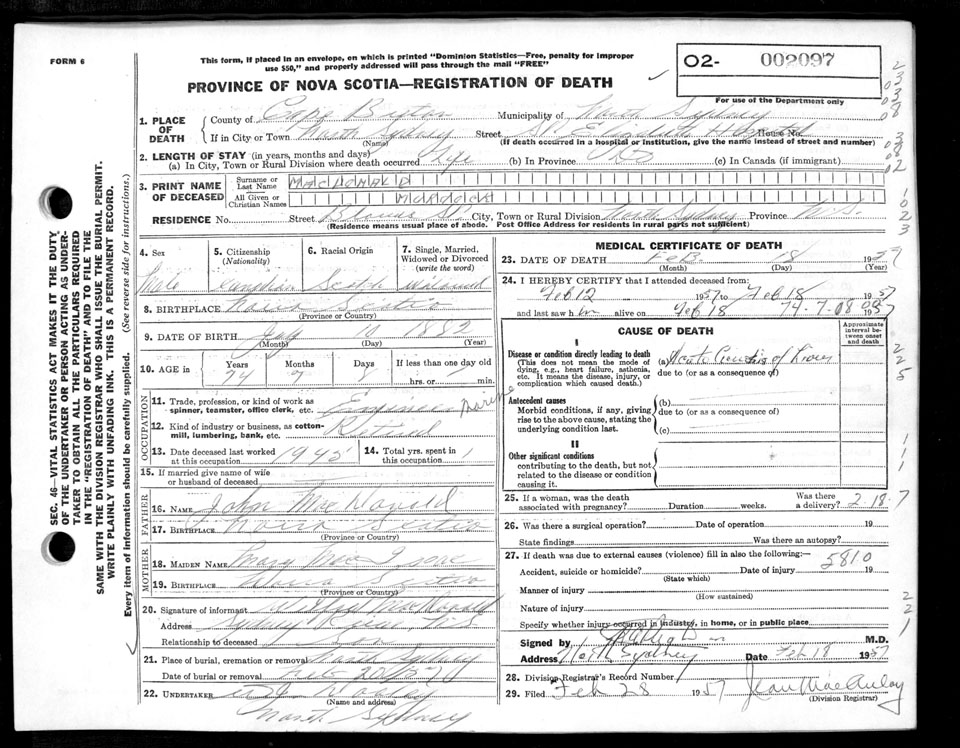 FORM 6
This form, if placed in an envelope, on which is printed "Dominion Statistics—Free, penalty for improper
use $50," and properly addressed will pass through the mail "FREE"
PROVINCE OF NOVA SCOTIA—REGISTRATION OF DEATH
O2- 002097
For use of the Department only
1. PLACE OF DEATH
County of Cape Breton Municipality of North Sydney
If in City or Town North Sydney Street St Elizabeth Hospital House No.
(Name) (If death occurred in a hospital or institution, give the name instead of street and number)
2. LENGTH OF STAY (in years, months and days)
(a) In City, Town or Rural Division where death occurred Life (b) In Province (c) In Canada (if immigrant)
3. PRINT NAME OF DECEASED
Surname or Last Name MACDONALD
All Given or Christian Names MURDOCK
RESIDENCE No. Street City, Town or Rural Division North Sydney Province N.S.
(Residence means usual place of abode. Post Office Address for residents in rural parts not sufficient)
4. Sex
Male
5. Citizenship (Nationality)
Canadian
6. Racial Origin
Scotch
7. Single, Married, Widowed or Divorced (write the word)
8. BIRTHPLACE Nova Scotia
(Province or Country)
9. DATE OF BIRTH July 10 1882
(Month) (Day) (Year)
10. AGE in Years Months Days If less than one day old
74 7 8 hrs. or min.
OCCUPATION
11. Trade, profession, or kind of work as spinner, teamster, office clerk, etc. Marine
12. Kind of industry or business, as cotton-mill, lumbering, bank, etc. Retired
13. Date deceased last worked at this occupation 1945
14. Total yrs. spent in this occupation
15. If married give name of wife or husband of deceased
FATHER
16. NAME John MacDonald
17. BIRTHPLACE Nova Scotia
(Province or Country)
MOTHER
18. MAIDEN NAME Mary
19. BIRTHPLACE Nova Scotia
(Province or Country)
20. Signature of informant MacDonald
Address Sydney N.S.
Relationship to deceased Son
21. Place of burial, cremation or removal North Sydney
Date of burial or removal Feb 20
22. UNDERTAKER
(Name and address)
North Sydney
MEDICAL CERTIFICATE OF DEATH
23. DATE OF DEATH Feb. 18 1957
(Month) (Day) (Year)
24. I HEREBY CERTIFY that I attended deceased from:
Feb 12 1957 to Feb 18 1957
and last saw him alive on Feb 18 1957
74-7-08
CAUSE OF DEATH
Approximate interval between onset and death
I
Disease or condition directly leading to death
(This does not mean the mode of dying, e.g., heart failure, asthenia, etc. It means the disease, injury, or complication which caused death.)
(a) Acute of Liver
due to (or as a consequence of)
Antecedent causes
Morbid conditions, if any, giving rise to the above cause, stating the underlying condition last.
(b)
due to (or as a consequence of)
(c)
II
Other significant conditions
contributing to the death, but not related to the disease or condition causing it.
25. If a woman, was the death associated with pregnancy? Duration weeks. Was there a delivery? 2-18-7
26. Was there a surgical operation? Date of operation 19
State findings Was there an autopsy?
27. If death was due to external causes (violence) fill in also the following:—
Accident, suicide or homicide? Date of injury 19
(State which)
5810
Manner of injury
(How sustained)
Nature of injury
Specify whether injury occurred in industry, in home, or in public place
Signed by M.D.
Address North Sydney Date Feb 18 1957
28. Division Registrar's Record Number
29. Filed Feb 28 1957 Jean MacAulay
(Division Registrar)
SEC. 46—VITAL STATISTICS ACT MAKES IT THE DUTY
OF THE UNDERTAKER OR PERSON ACTING AS UNDER-
TAKER TO OBTAIN ALL THE PARTICULARS REQUIRED
IN THE "REGISTRATION OF DEATH" AND TO FILE THE
SAME WITH THE DIVISION REGISTRAR WHO SHALL ISSUE THE BURIAL PERMIT.
WRITE PLAINLY WITH UNFADING INK. THIS IS A PERMANENT RECORD.
Every item of information should be carefully supplied. (See reverse side for instructions.)